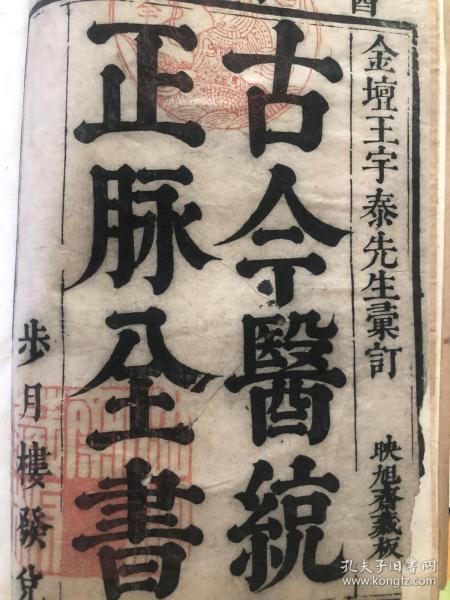 金壇王宇泰先生彙訂
映旭齋藏板
古今醫統
正脉全書
步月樓發兌
孔夫子旧书网
www.kongfz.com